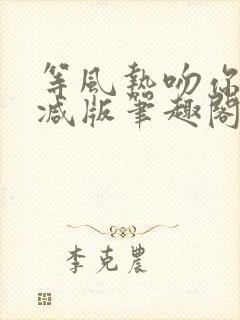 等風熱吻你
減版筆趣閣
李克農